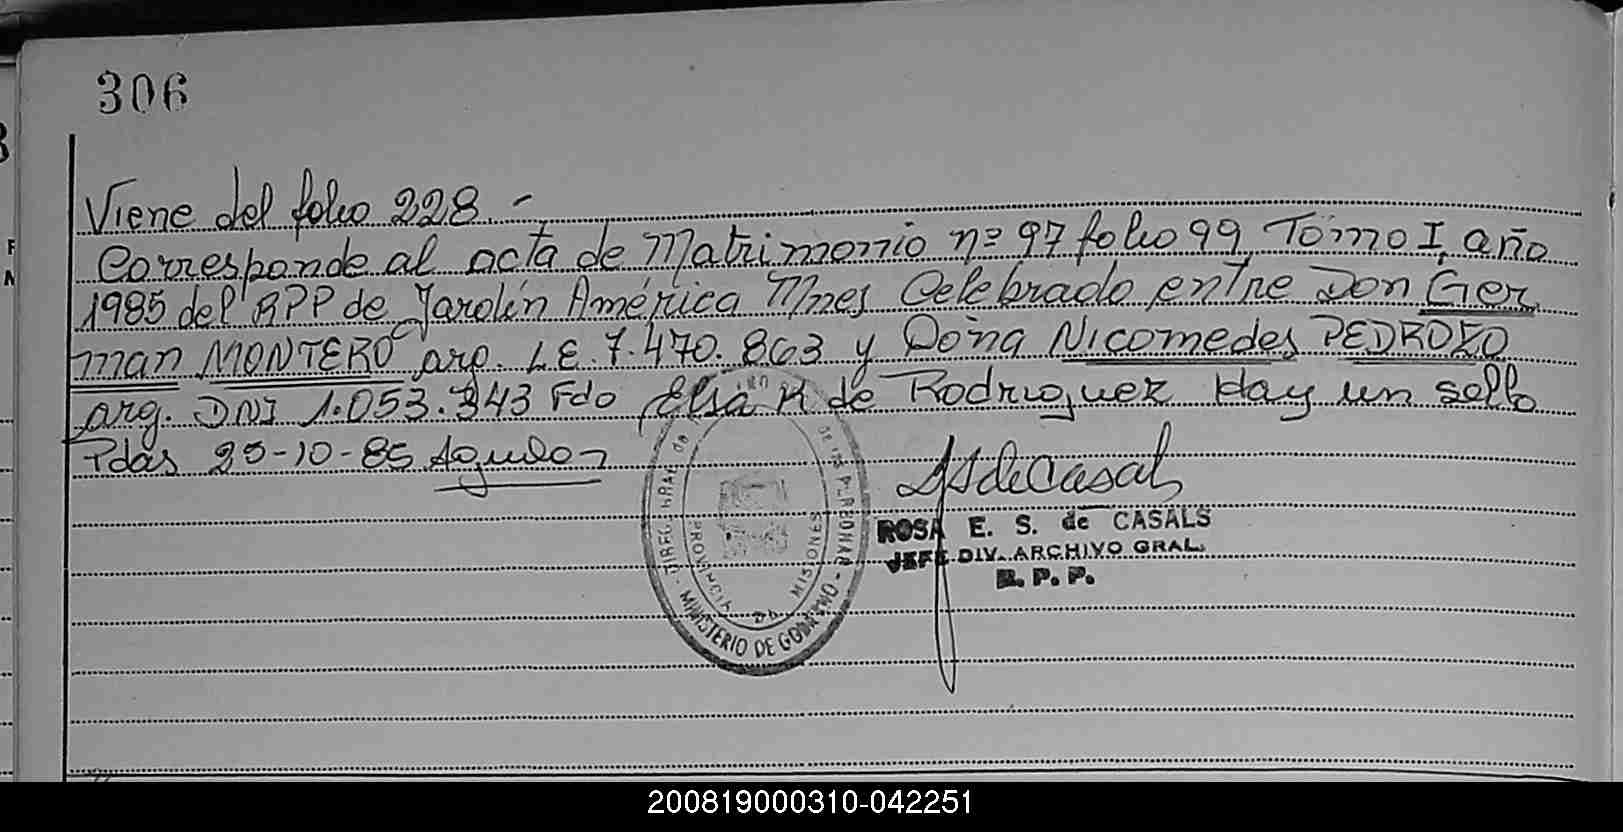 306
Viene del folio 228.-
Corresponde al acta de Matrimonio nº 97 folio 99 Tomo I, año
1985 del RPP de Jardín América Mnes Celebrado entre Don Ger
man MONTERO arg. L.E. 7.470.863 y Doña Nicomedes PEDROZO
arg. DNI 1.053.343 Fdo Elsa R de Rodriguez Hay un sello
Pdas 25-10-85
ROSA E. S. de CASALS
JEFE DIV. ARCHIVO GRAL.
R. P. P.
PROVINCIA DE MISIONES
MINISTERIO DE GOBIERNO
200819000310-042251